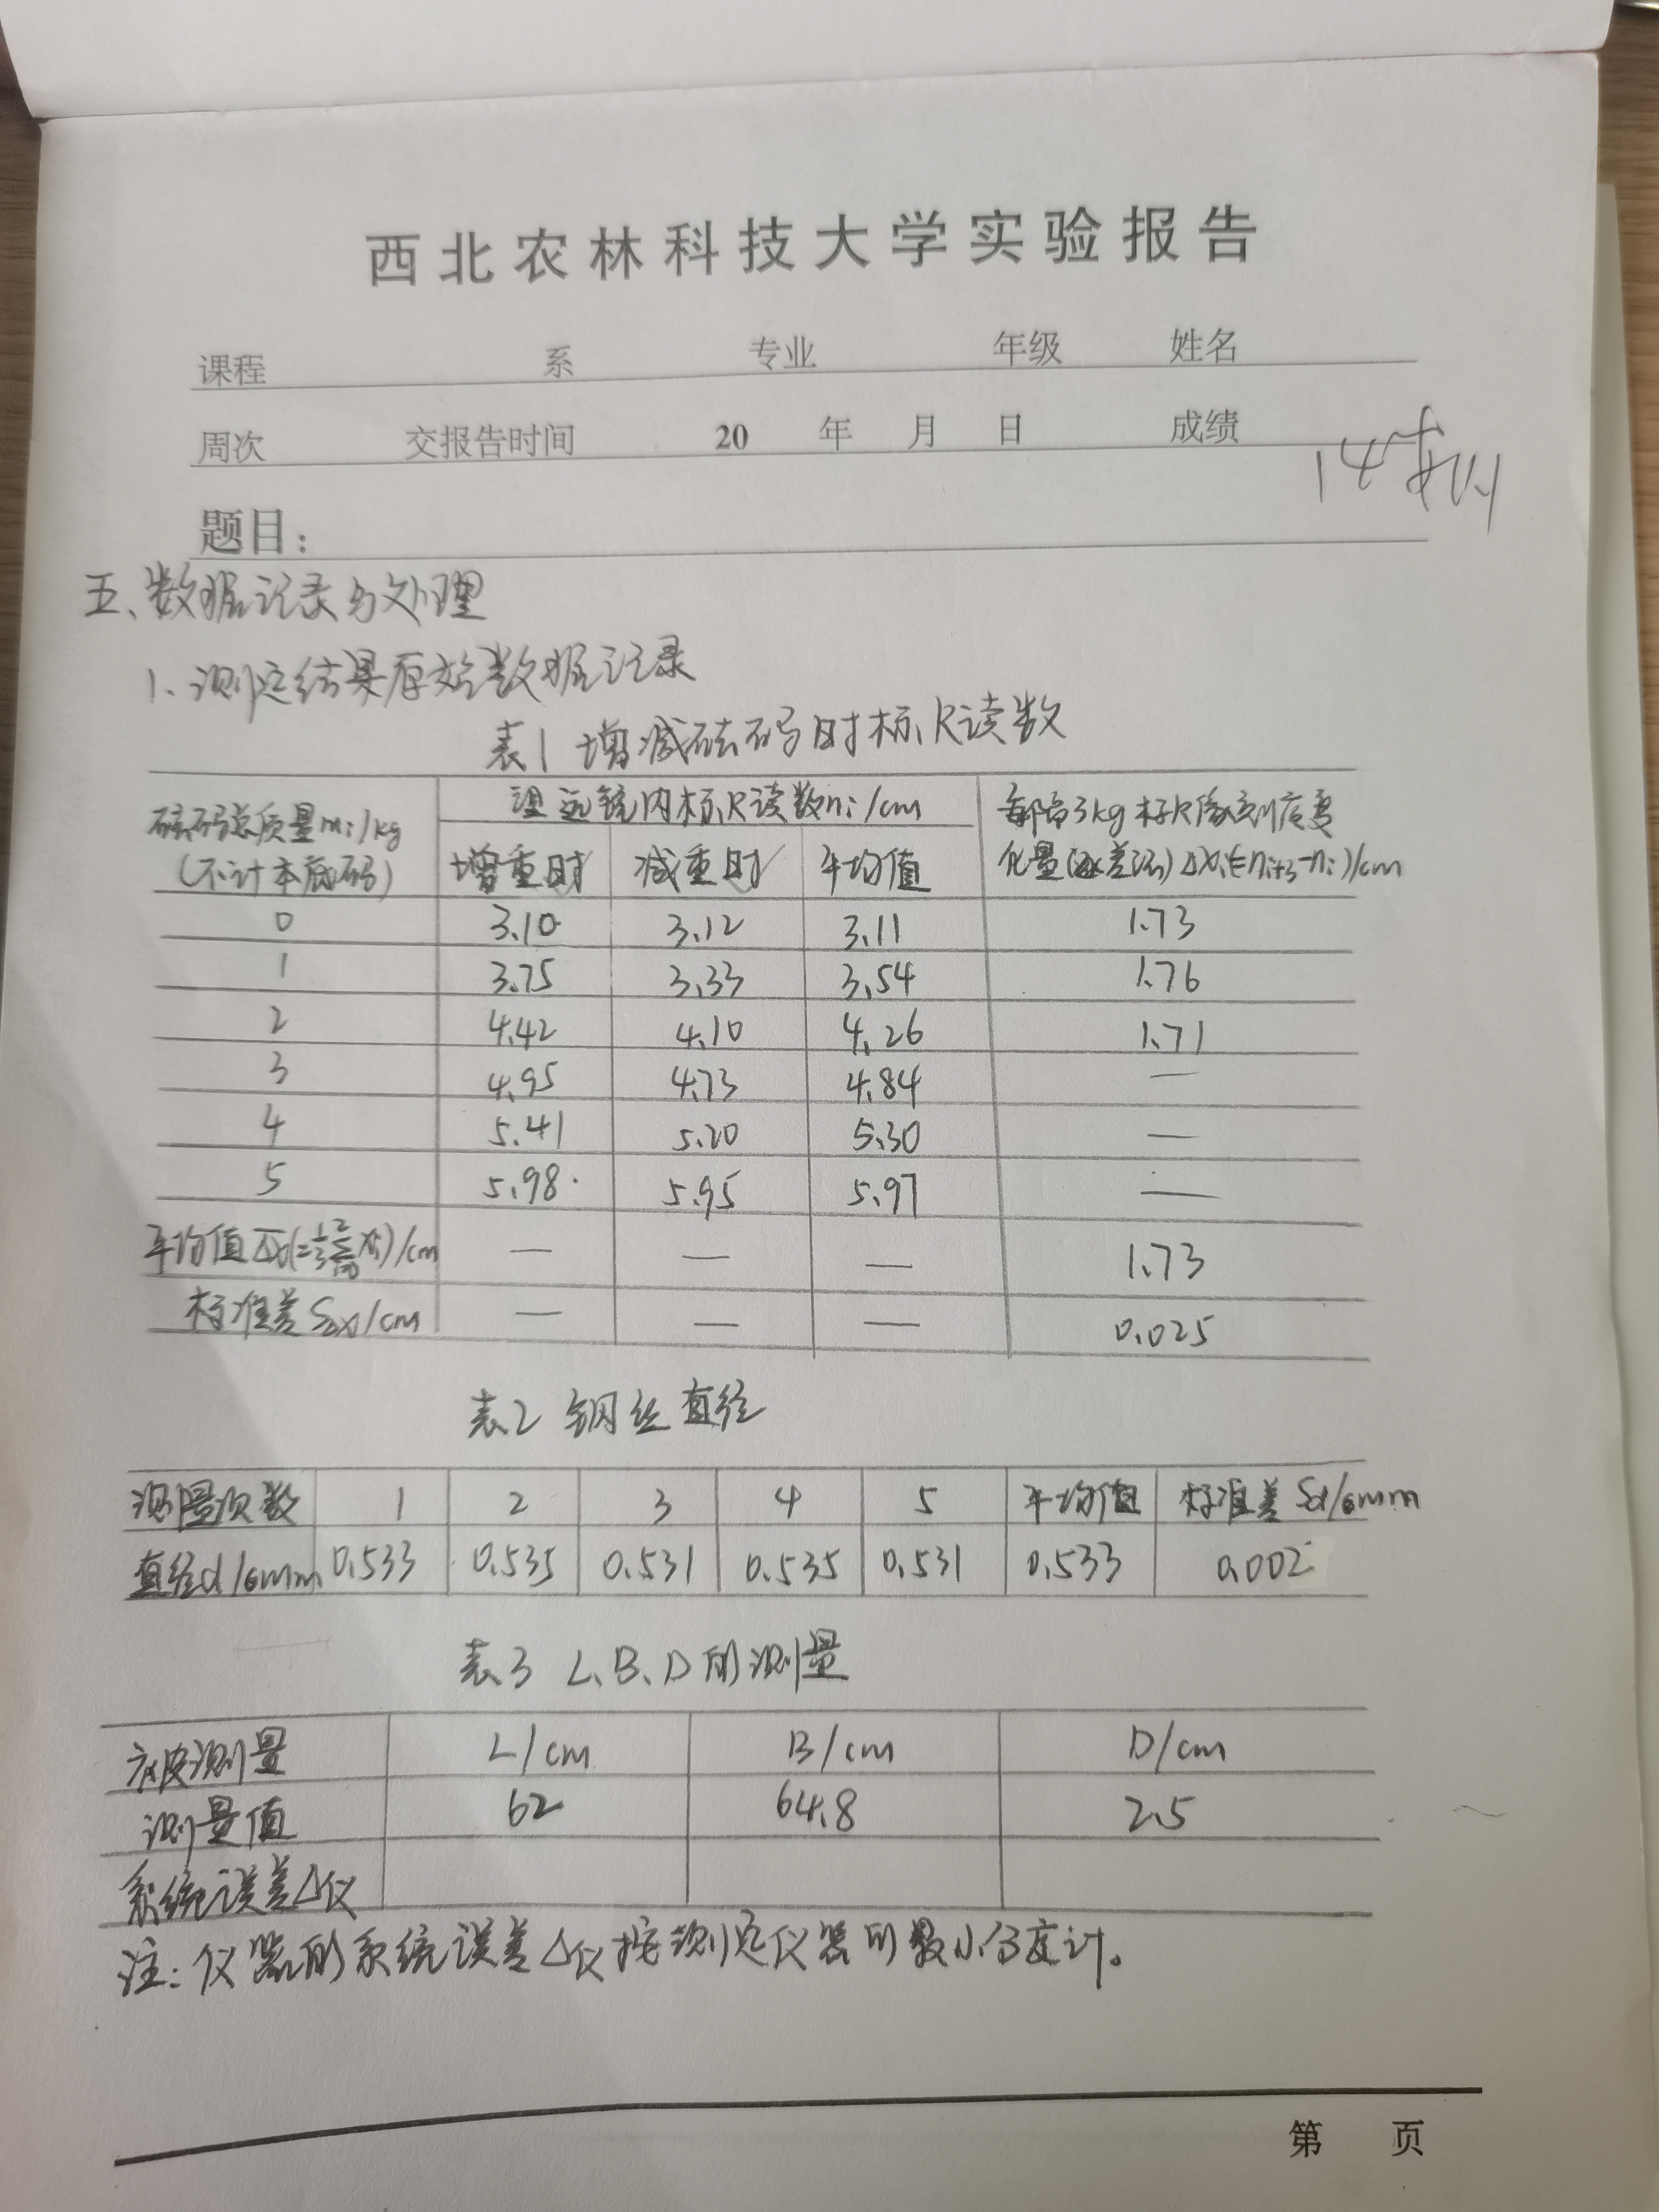 西北农林科技大学实验报告
课程 系 专业 年级 姓名
周次 交报告时间 20 年 月 日 成绩
14
题目：
五、数据记录与处理
1、测定结果原始数据记录
表1 增减砝码时标尺读数
砝码总质量mi/kg (不计本底码) 望远镜内标尺读数ni/cm 每隔3kg标尺像刻度变化量(逐差法)Δxi(=ni+3-ni)/cm
增重时 减重时 平均值
0 3.10 3.12 3.11 1.73
1 3.75 3.33 3.54 1.76
2 4.42 4.10 4.26 1.71
3 4.95 4.73 4.84 —
4 5.41 5.20 5.30 —
5 5.98 5.95 5.97 —
平均值 — — — 1.73
标准差SΔx/cm — — — 0.025
表2 钢丝直径
测量次数 1 2 3 4 5 平均值 标准差Sd/mm
直径d/mm 0.533 0.535 0.531 0.535 0.531 0.533 0.002
表3 L、B、D的测量
测量 L/cm B/cm D/cm
测量值 62 64.8 2.5
系统误差Δ仪
注：仪器的系统误差Δ仪按测定仪器的最小分度计。
第 页